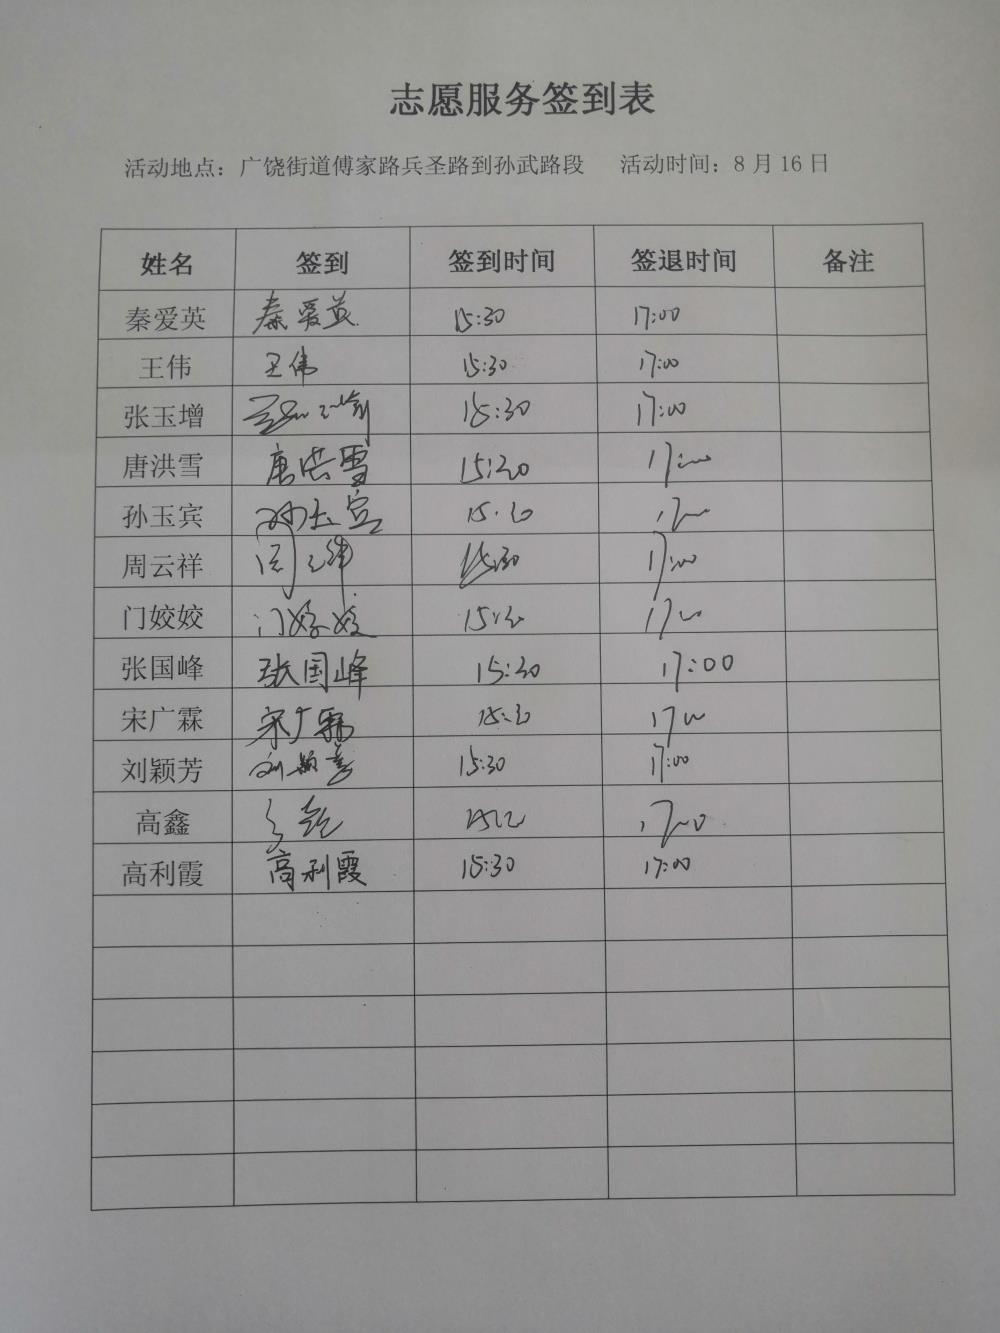 志愿服务签到表
活动地点：广饶街道傅家路兵圣路到孙武路段 活动时间：8月16日
姓名 签到 签到时间 签退时间 备注
秦爱英 秦爱英 15:30 17:00
王伟 王伟 15:30 17:00
张玉增 15:30 17:00
唐洪雪 唐洪雪 15:30 17:00
孙玉宾 孙玉宾 15:30 17:00
周云祥 周云祥 15:30 17:00
门姣姣 门姣姣 15:30 17:00
张国峰 张国峰 15:30 17:00
宋广霖 宋广霖 15:30 17:00
刘颖芳 刘颖芳 15:30 17:00
高鑫 17:00
高利霞 高利霞 15:30 17:00